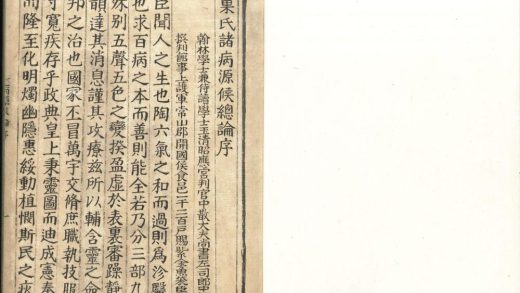 巢氏諸病源候總論序
翰林學士兼侍讀學士玉清昭應宮判官中散大夫尚書左司郎中
撰判館事上護軍常山郡開國侯食邑一千二百戶賜紫金魚袋臣
臣聞人之生也陶六氣之和而過則為沴醫
也求百病之本而善則能全若乃分三部九
殊別五聲五色之變揆盈虛於表裏審躁靜
韻達其消息謹其攻療茲所以輔含靈之命
邦之治也國家丕冒萬宇交脩庶職執技服
寸寬疾存乎政典皇上秉靈圖而迪成憲奉
而隆至化明燭幽隱惠綏動植憫斯民之疾